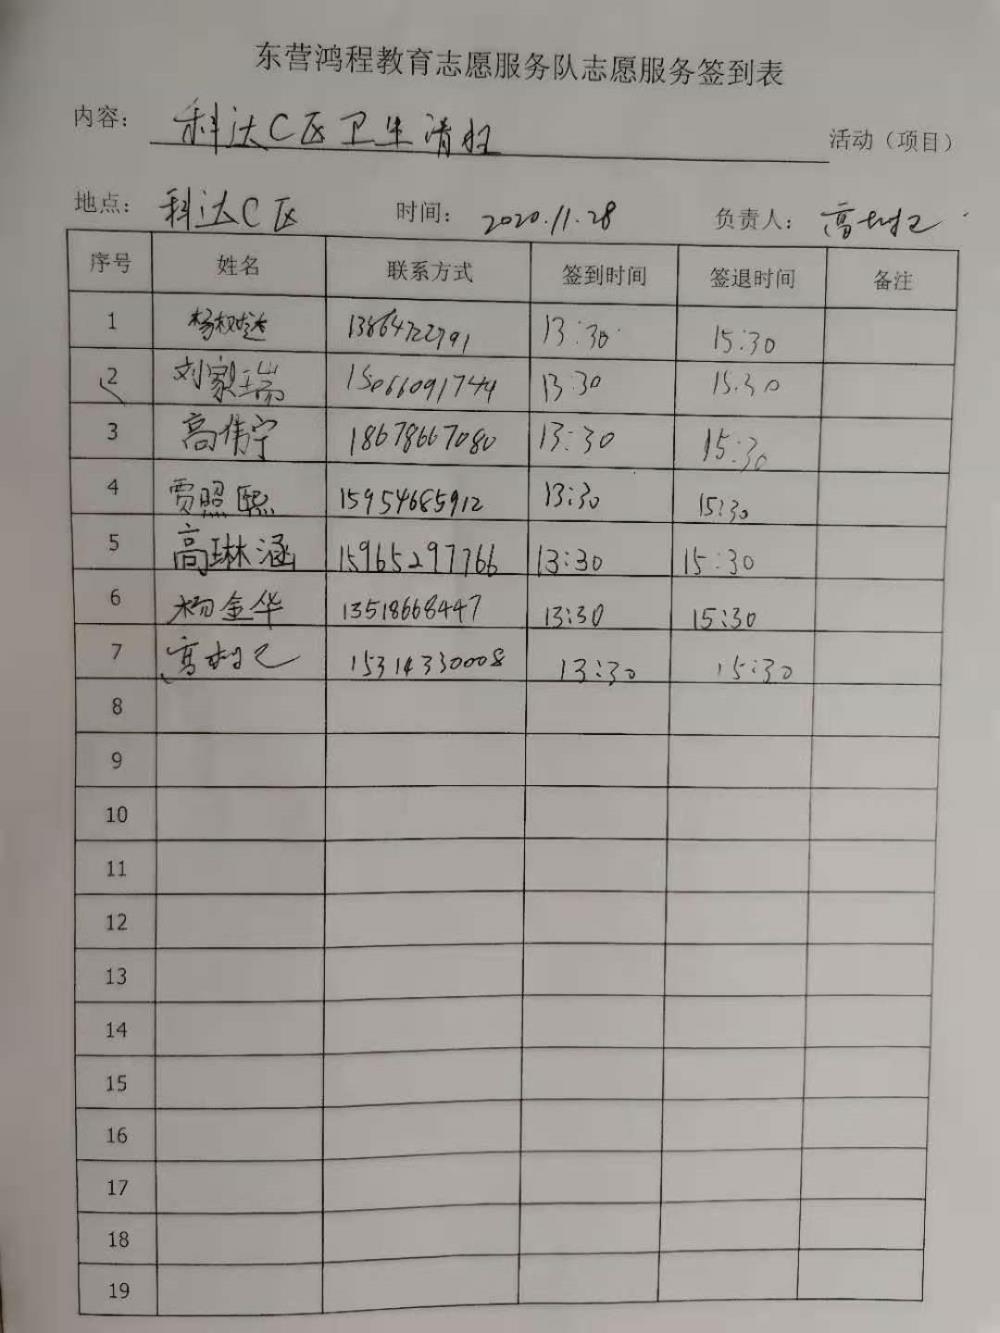 东营鸿程教育志愿服务队志愿服务签到表
内容： 科达C区卫生清扫 活动（项目）
地点： 科达C区 时间： 2020.11.28 负责人： 高
序号 姓名 联系方式 签到时间 签退时间 备注
1 杨 13864722791 13:30 15:30
2 刘家瑞 15066091744 13:30 15:30
3 高伟宁 18678667080 13:30 15:30
4 贾照熙 15954685912 13:30 15:30
5 高琳涵 15965297766 13:30 15:30
6 杨金华 13518668447 13:30 15:30
7 高 15314330008 13:30 15:30
8
9
10
11
12
13
14
15
16
17
18
19